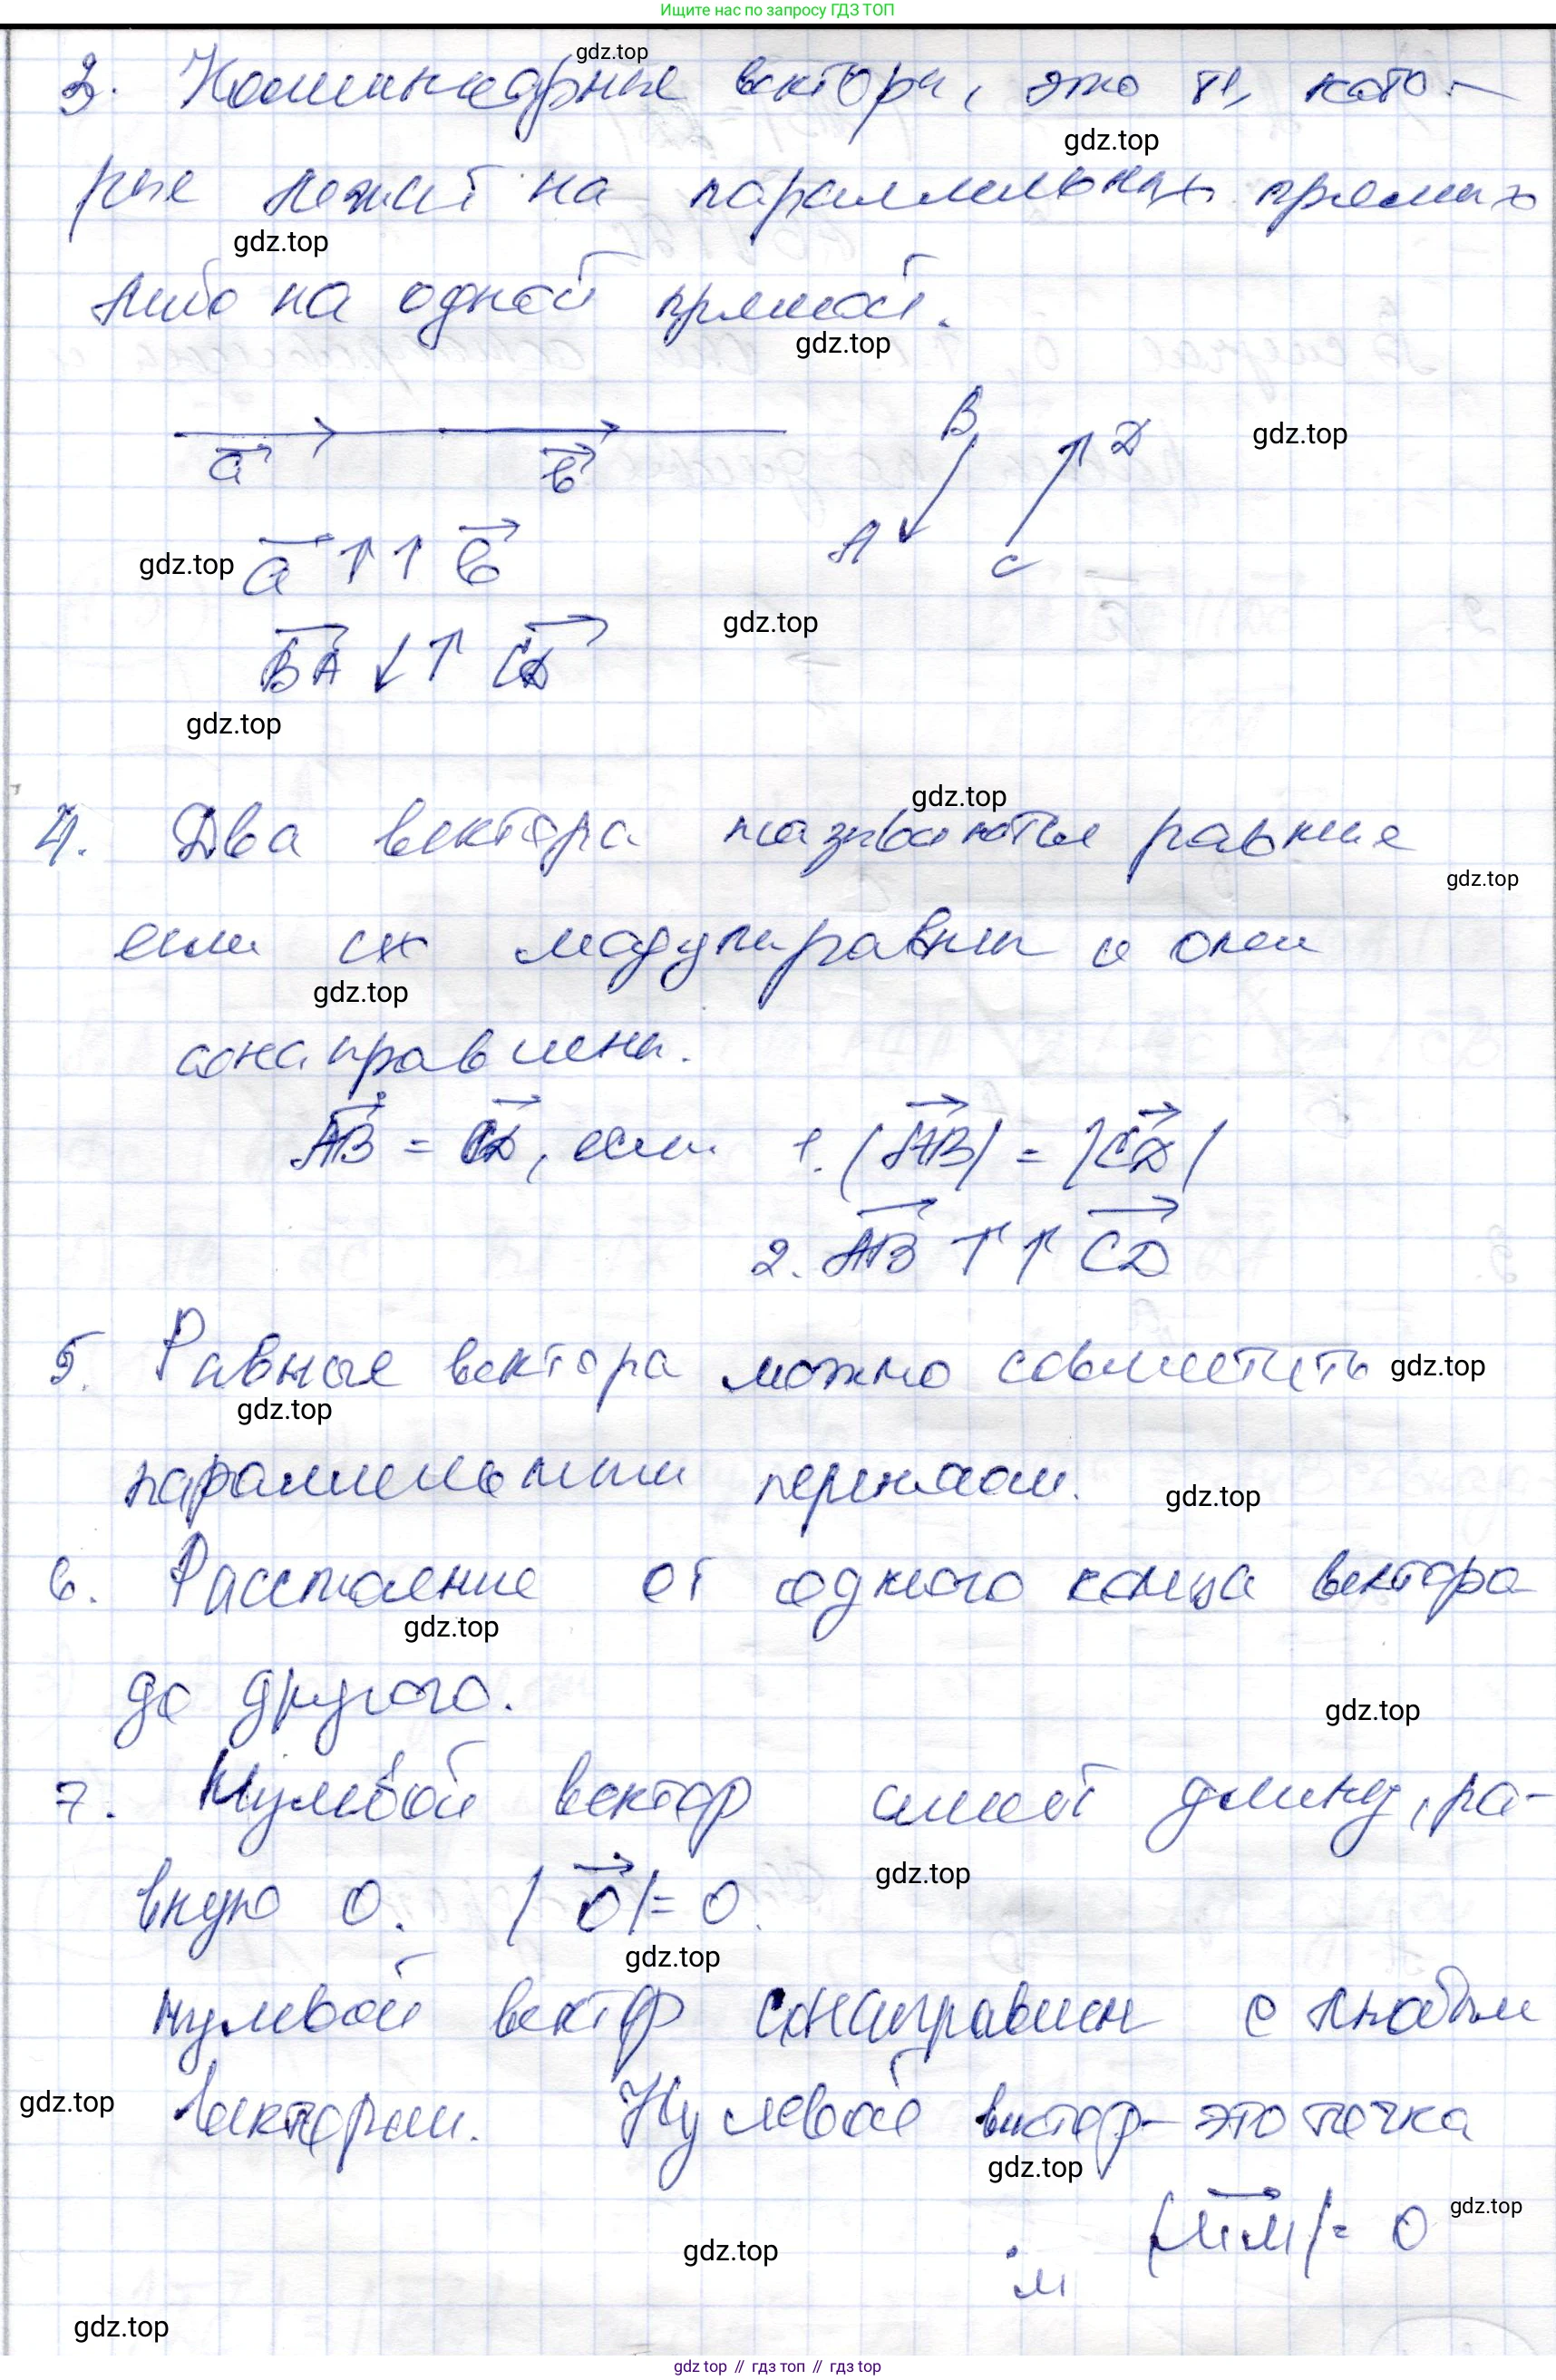 Ищите нас по запросу ГДЗ ТОП
3. Коллинеарные вектора, это те, кото-
gdz.top
gdz.top
рые лежат на параллельных прямых
gdz.top
либо на одной прямой.
gdz.top
a b B D gdz.top
A C
gdz.top a ↑↑ b
gdz.top
BA ↓↑ CD
gdz.top
gdz.top
4. Два вектора называются равные
gdz.top
если их модули равны и они
gdz.top
сонаправлены.
AB = CD, если 1. |AB| = |CD|
2. AB ↑↑ CD
5. Равные вектора можно совместить gdz.top
gdz.top
параллельным переносом.
gdz.top
6. Расстояние от одного конца вектора
gdz.top
до другого.
gdz.top
7. Нулевой вектор имеет длину, ра-
gdz.top
вную 0. |0|= 0.
gdz.top
нулевой вектор сонаправлен с любым
gdz.top вектором. Нулевой вектор - это точка
gdz.top
|MM|= 0 gdz.top
gdz.top
M
gdz.top
gdz top // гдз топ // гдз top